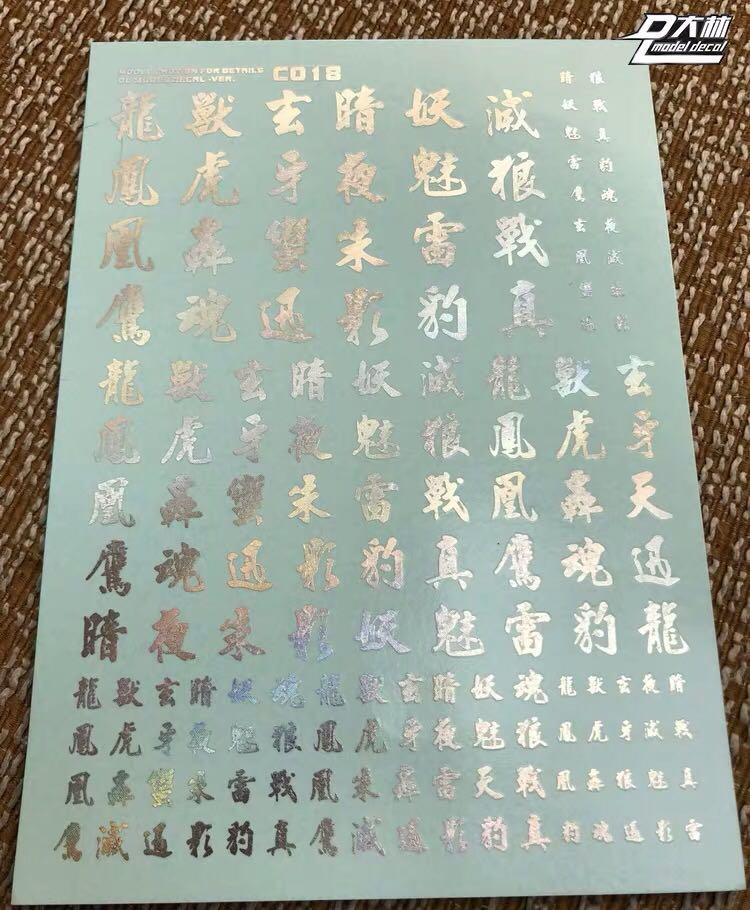 大林
model decal
MODEL CAUTION FOR DETAILS
DL MODEL DECAL -VER.
C018
龍獸玄暗妖滅
鳳虎牙夜魅狼
凰轟蠻朱雷戰
鷹魂迅影豹真
暗狼
妖戰
魅真
雷豹
鷹魂
玄夜
凰滅
龍獸玄暗妖滅龍獸玄
鳳虎牙夜魅狼鳳虎牙
凰轟蠻朱雷戰凰轟天
鷹魂迅影豹真鷹魂迅
暗夜朱影妖魅雷豹龍
龍獸玄暗妖魂龍獸玄暗妖魂龍獸玄夜暗
鳳虎牙夜魅狼鳳虎牙夜魅狼鳳虎牙滅戰
凰轟蠻朱雷戰凰朱轟雷天戰凰轟狼魅真
鷹滅迅影豹真鷹滅迅影豹真豹魂迅影雷